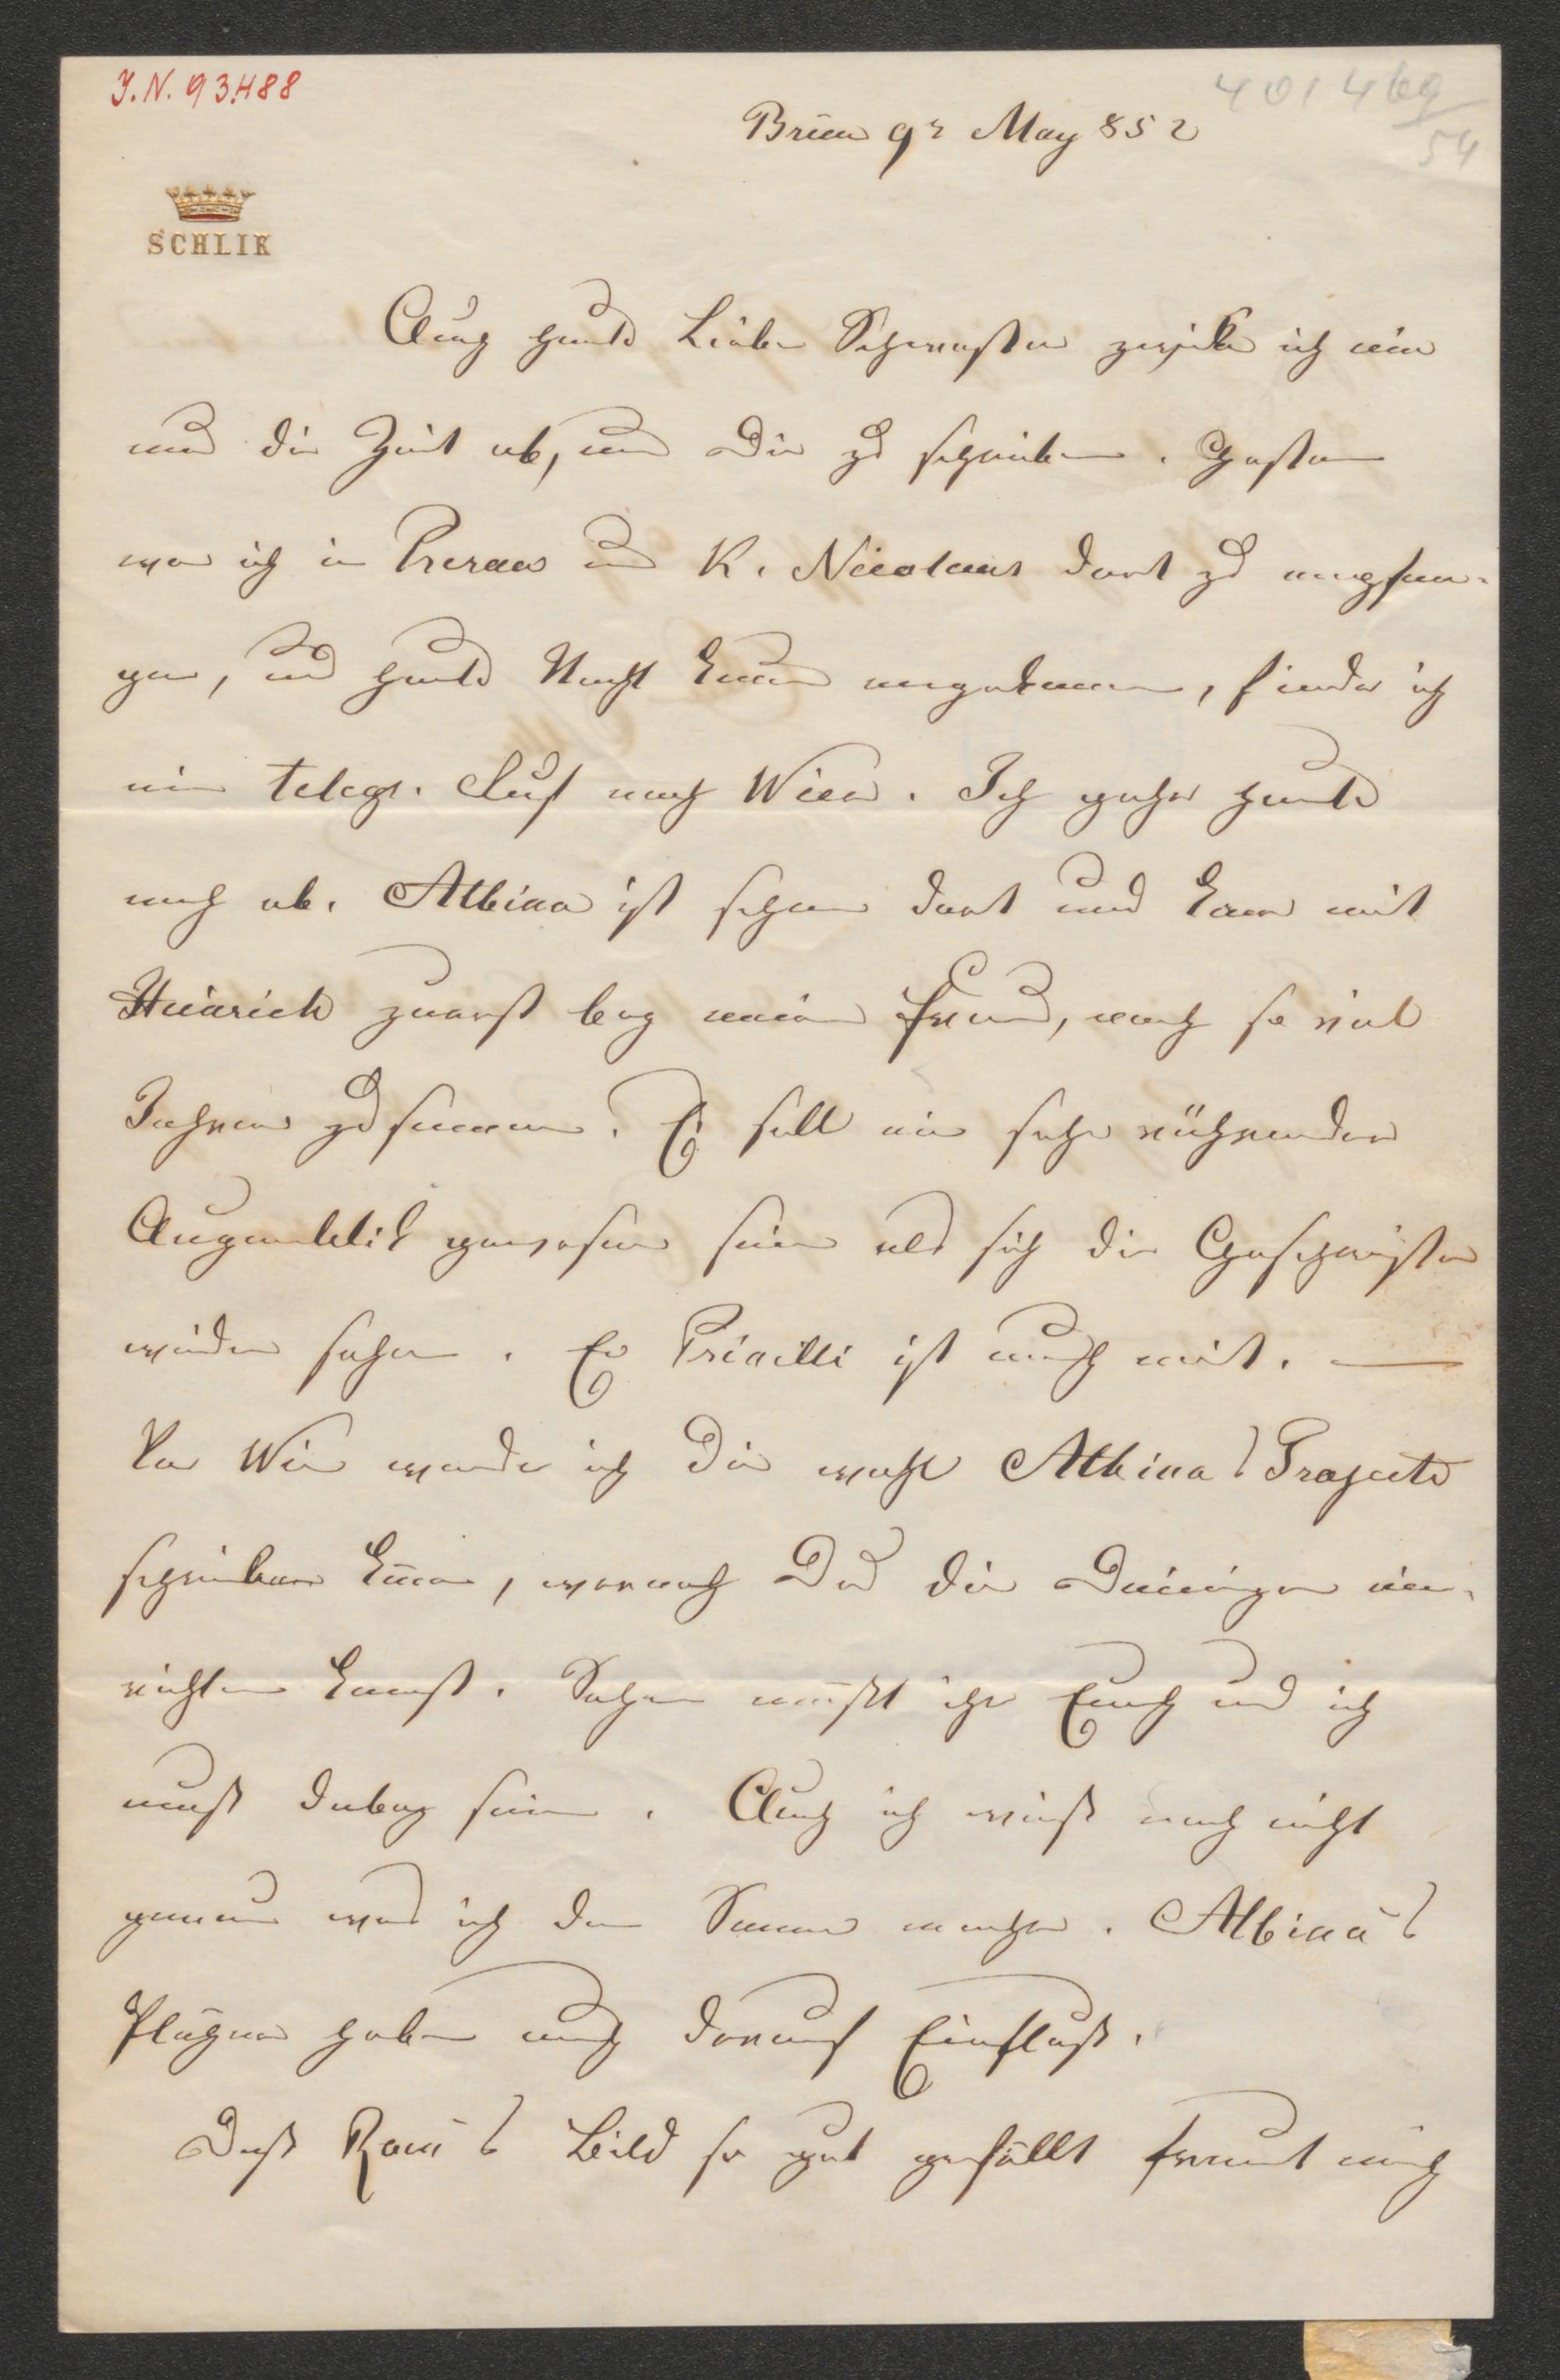 J.N. 93.488
401469
54
Brünn 9t May 852
SCHLIK
Auch heute Liebe Schwester zwicke ich mir
nur die Zeit ab, um Dir zu schreiben. Gestern
war ich in Prerau um K. Nicolaus dort zu empfan-
gen, und heute Nacht kaum angekommen, finde ich
ein telegr. Ruf nach Wien. Ich gehe heute
noch ab. Albina ist schon dort und kam mit
Heinrich zuerst bey meiner Frau, nach so viel
Jahren zusammen. Es soll ein sehr rührender
Augenblick gewesen sein als sich die Geschwister
wieder sahen. Er ist auch mit. —
Von Wien werde ich Dir wohl Albina's Projecte
schreiben können, wornach Du die Deinigen ein-
richten kannst. Sehen müßt ihr Euch und ich
muß dabey sein. Auch ich weiß noch nicht
genau was ich den Sommer mache. Albina's
Pläne haben auch darauf Einfluß.
Daß Bild so gut gefällt freut mich